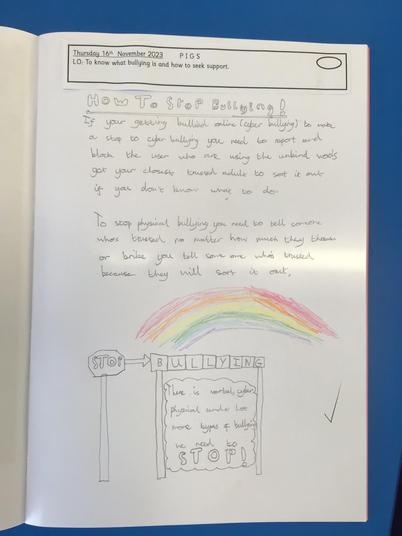 Thursday 16th November 2023 PIGS
LO: To know what bullying is and how to seek support.
How To Stop Bullying!
If your getting bullied online (cyber bullying) to make
a stop to cyber bullying you need to report and
block the user who are using the unkind
got your closest trusted adult to sort it out
if you don't know what to do
To stop physical bullying you need to tell
whos trusted no matter how much they
or bribe you tell some one who's trusted
because they will sort it out,
STOP
BULLYING
There is verbal, cyber,
physical and
more types of bullying
we need to
STOP!